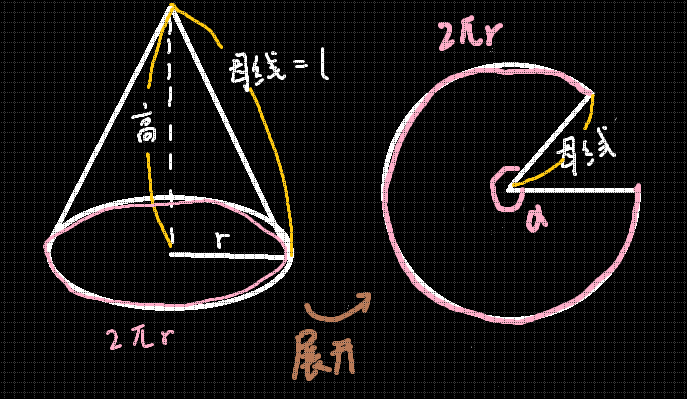 母线=l
高
r
2πr
展开
2πr
母线
α